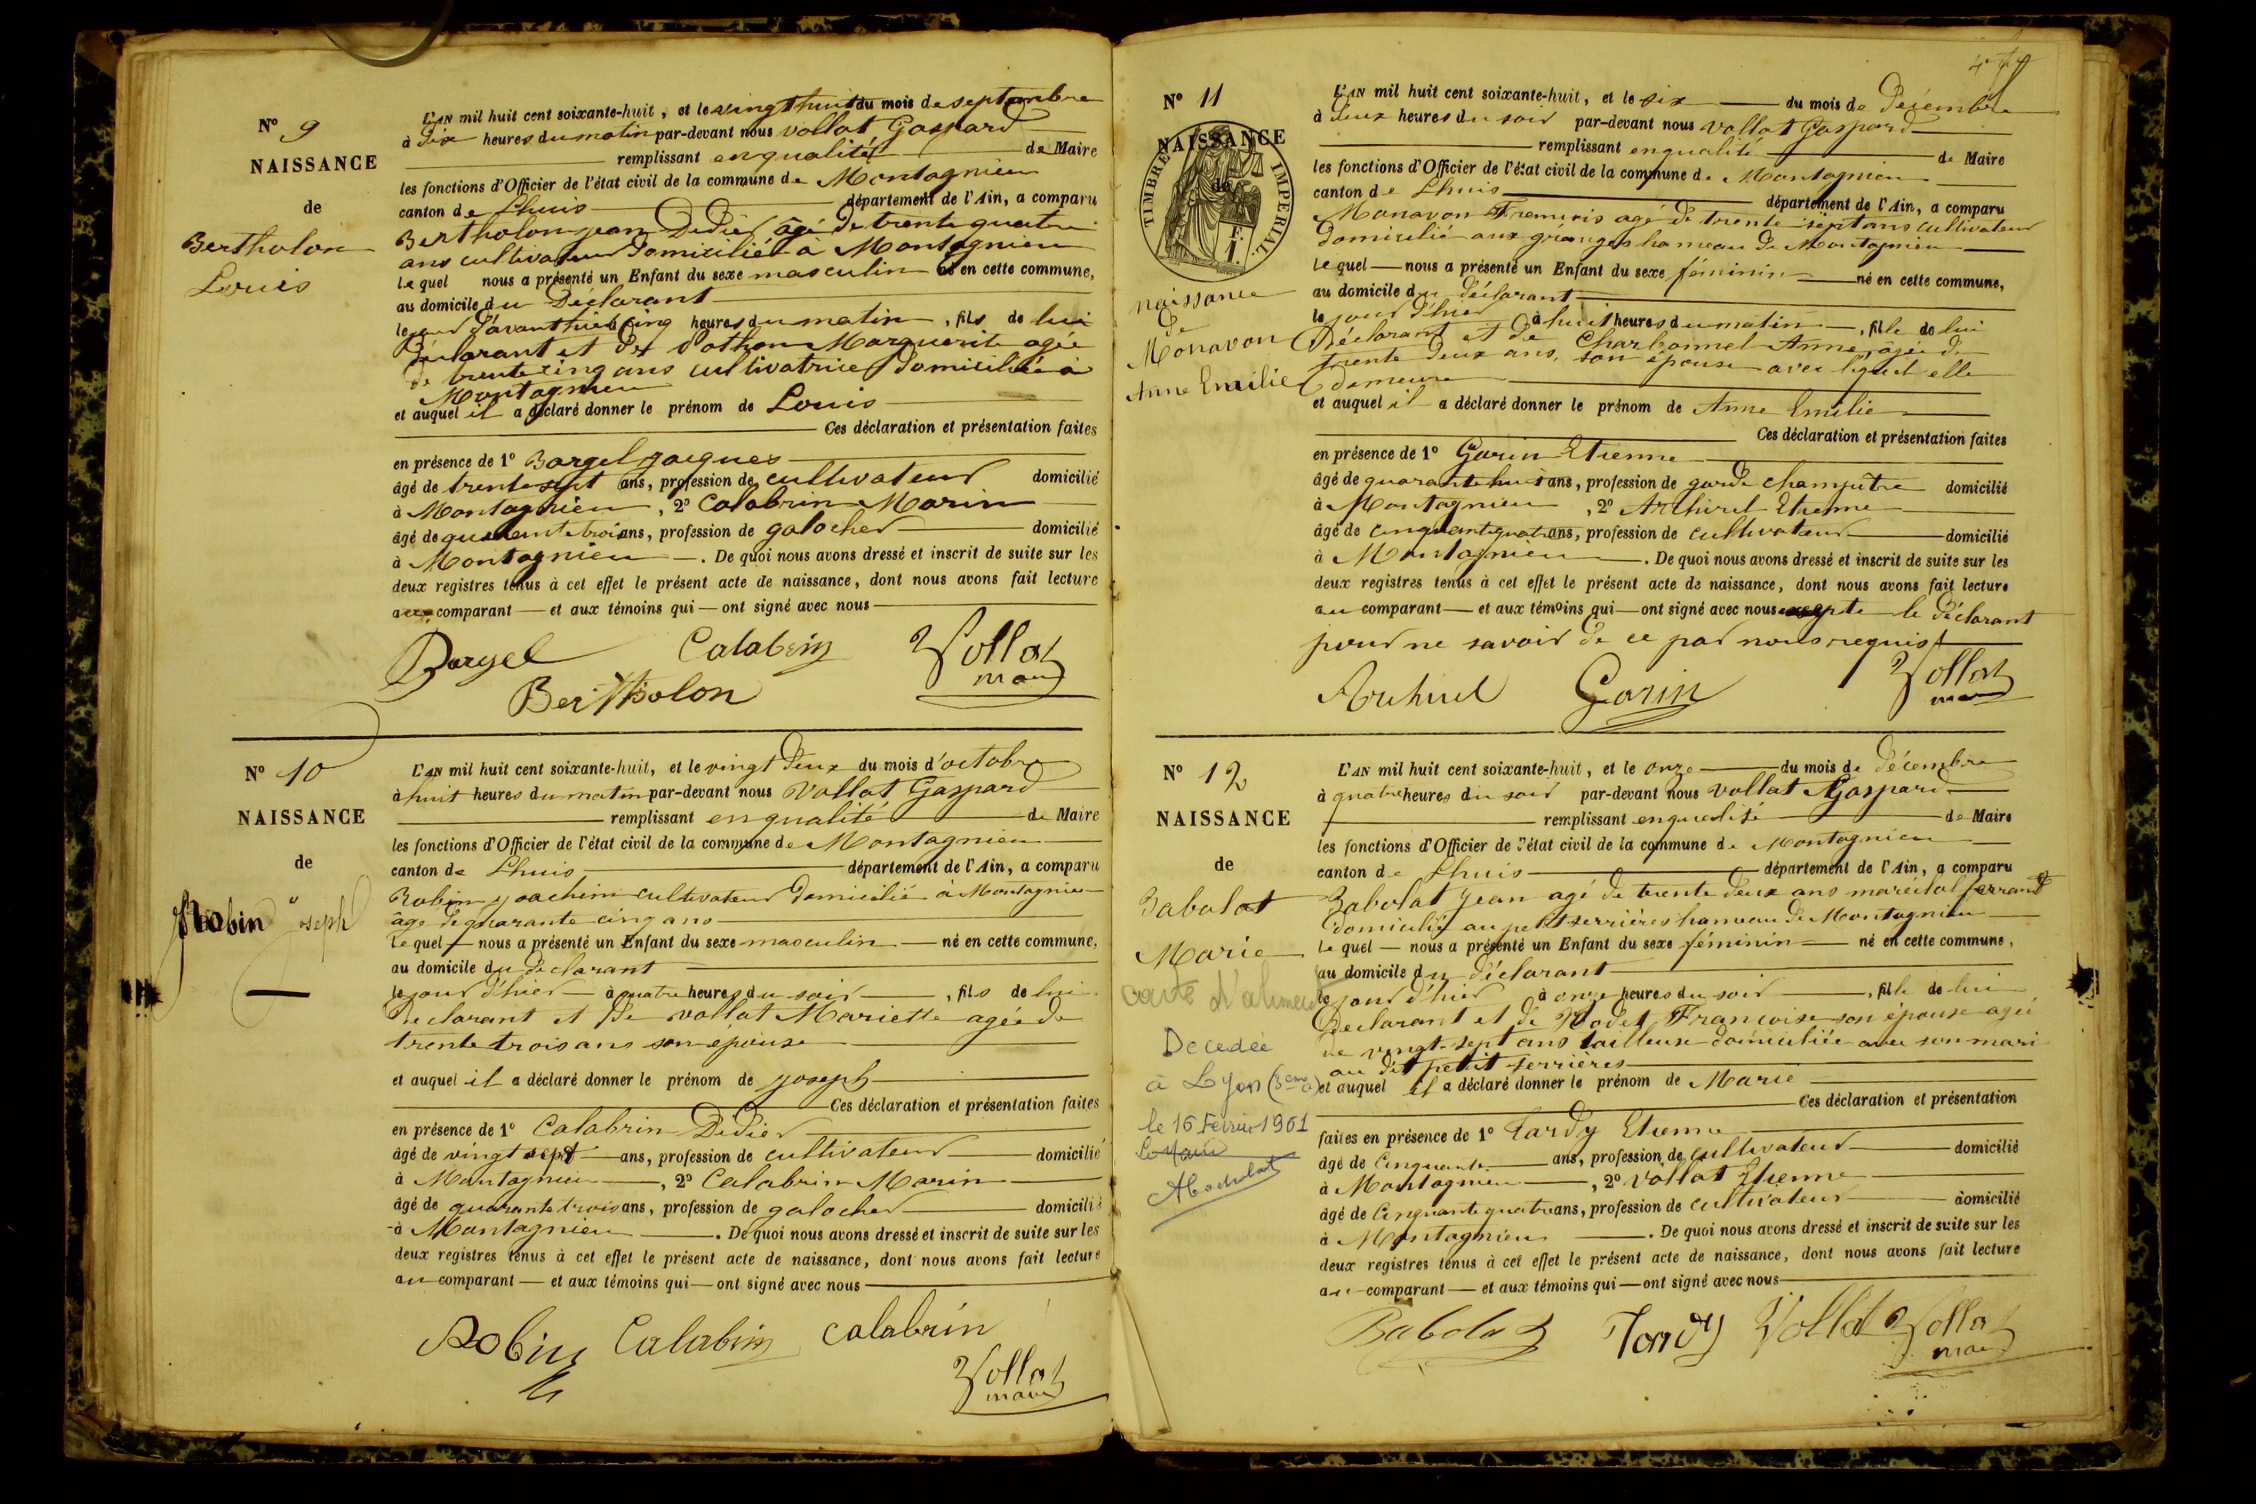 N° 9
NAISSANCE
de
Bertholon
Louis
L'AN mil huit cent soixante-huit, et le vingt huit du mois de septembre
à dix heures du matin par-devant nous Vollat Gaspard
remplissant en qualité de Maire
les fonctions d'Officier de l'état civil de la commune de Montagnieu
canton de Lhuis département de l'Ain, a comparu
Bertholon jean Didier âgé de trente quatre
ans cultivateur domicilié à Montagnieu
Le quel nous a présenté un Enfant du sexe masculin né en cette commune,
au domicile du Déclarant
le jour d'avant hier cinq heures du matin, fils de lui
Déclarant et de Marguerite agée
de trente cinq ans cultivatrice domiciliée à
Montagnieu
et auquel il a déclaré donner le prénom de Louis
Ces déclaration et présentation faites
en présence de 1° Bargel jacques
âgé de trente sept ans, profession de cultivateur domicilié
à Montagnieu, 2° Calabrin Marin
âgé de quarante trois ans, profession de galocher domicilié
à Montagnieu. De quoi nous avons dressé et inscrit de suite sur les
deux registres tenus à cet effet le présent acte de naissance, dont nous avons fait lecture
au comparant et aux témoins qui ont signé avec nous
Bargel Calabrin Vollat
Bertholon maire
N° 10
NAISSANCE
de
Robin joseph
L'AN mil huit cent soixante-huit, et le vingt deux du mois d'octobre
à huit heures du matin par-devant nous Vollat Gaspard
remplissant en qualité de Maire
les fonctions d'Officier de l'état civil de la commune de Montagnieu
canton de Lhuis département de l'Ain, a comparu
Robin joachim cultivateur domicilié à Montagnieu
âge de quarante cinq ans
Le quel nous a présenté un Enfant du sexe masculin né en cette commune,
au domicile du declarant
le jour d'hier à quatre heures du soir, fils de lui
Declarant et de Vollat Mariette agée de
trente trois ans son épouse
et auquel il a déclaré donner le prénom de joseph
Ces déclaration et présentation faites
en présence de 1° Calabrin Didier
âgé de vingt sept ans, profession de cultivateur domicilié
à Montagnieu, 2° Calabrin Marin
âgé de quarante trois ans, profession de galocher domicilié
à Montagnieu. De quoi nous avons dressé et inscrit de suite sur les
deux registres tenus à cet effet le présent acte de naissance, dont nous avons fait lecture
au comparant et aux témoins qui ont signé avec nous
Robin Calabrin Calabrin
Vollat
maire
N° 11
NAISSANCE
de
TIMBRE IMPERIAL
1 F.
naissance
de
Monavon
Anne Emilie
L'AN mil huit cent soixante-huit, et le six du mois de Décembre
à deux heures du soir par-devant nous Vollat Gaspard
remplissant en qualité de Maire
les fonctions d'Officier de l'état civil de la commune de Montagnieu
canton de Lhuis département de l'Ain, a comparu
Monavon François agé de trente sept ans cultivateur
domicilié aux granges hameau de Montagnieu
Le quel nous a présenté un Enfant du sexe féminin né en cette commune,
au domicile du déclarant
le jour d'hier à huit heures du matin, fille de lui
Déclarant et de Charbonnel Anne, agée de
trente deux ans, son épouse avec lequel elle
demeure
et auquel il a déclaré donner le prénom de Anne Emilie
Ces déclaration et présentation faites
en présence de 1° Garin Etienne
âgé de quarante huit ans, profession de garde champêtre domicilié
à Montagnieu, 2° Etienne
âgé de cinquante quatre ans, profession de cultivateur domicilié
à Montagnieu. De quoi nous avons dressé et inscrit de suite sur les
deux registres tenus à cet effet le présent acte de naissance, dont nous avons fait lecture
au comparant et aux témoins qui ont signé avec nous excepte le déclarant
pour ne savoir de ce par nous requis
Garin Vollat
maire
N° 12
NAISSANCE
de
Babolat
Marie
carte d'aliment
Décédée
à Lyon
le 16 Fevrier 1961
Le Maire
L'AN mil huit cent soixante-huit, et le onze du mois de décembre
à quatre heures du soir par-devant nous Vollat Gaspard
remplissant en qualité de Maire
les fonctions d'Officier de l'état civil de la commune de Montagnieu
canton de Lhuis département de l'Ain, a comparu
Babolat jean agé de trente deux ans maréchal ferrand
domicilié au petit serrières hameau de Montagnieu
Le quel nous a présenté un Enfant du sexe féminin né en cette commune,
au domicile du déclarant
le jour d'hier à onze heures du soir, fille de lui
Declarant et de Françoise son épouse agée
de vingt-sept ans tailleuse domiciliée avec son mari
au dit petit serrières
et auquel il a déclaré donner le prénom de Marie
Ces déclaration et présentation
faites en présence de 1° Tardy Etienne
âgé de Cinquante ans, profession de cultivateur domicilié
à Montagnieu, 2° Vollat Etienne
âgé de Cinquante quatre ans, profession de cultivateur domicilié
à Montagnieu. De quoi nous avons dressé et inscrit de suite sur les
deux registres tenus à cet effet le présent acte de naissance, dont nous avons fait lecture
au comparant et aux témoins qui ont signé avec nous
Babolat Tardy Vollat Vollat
maire